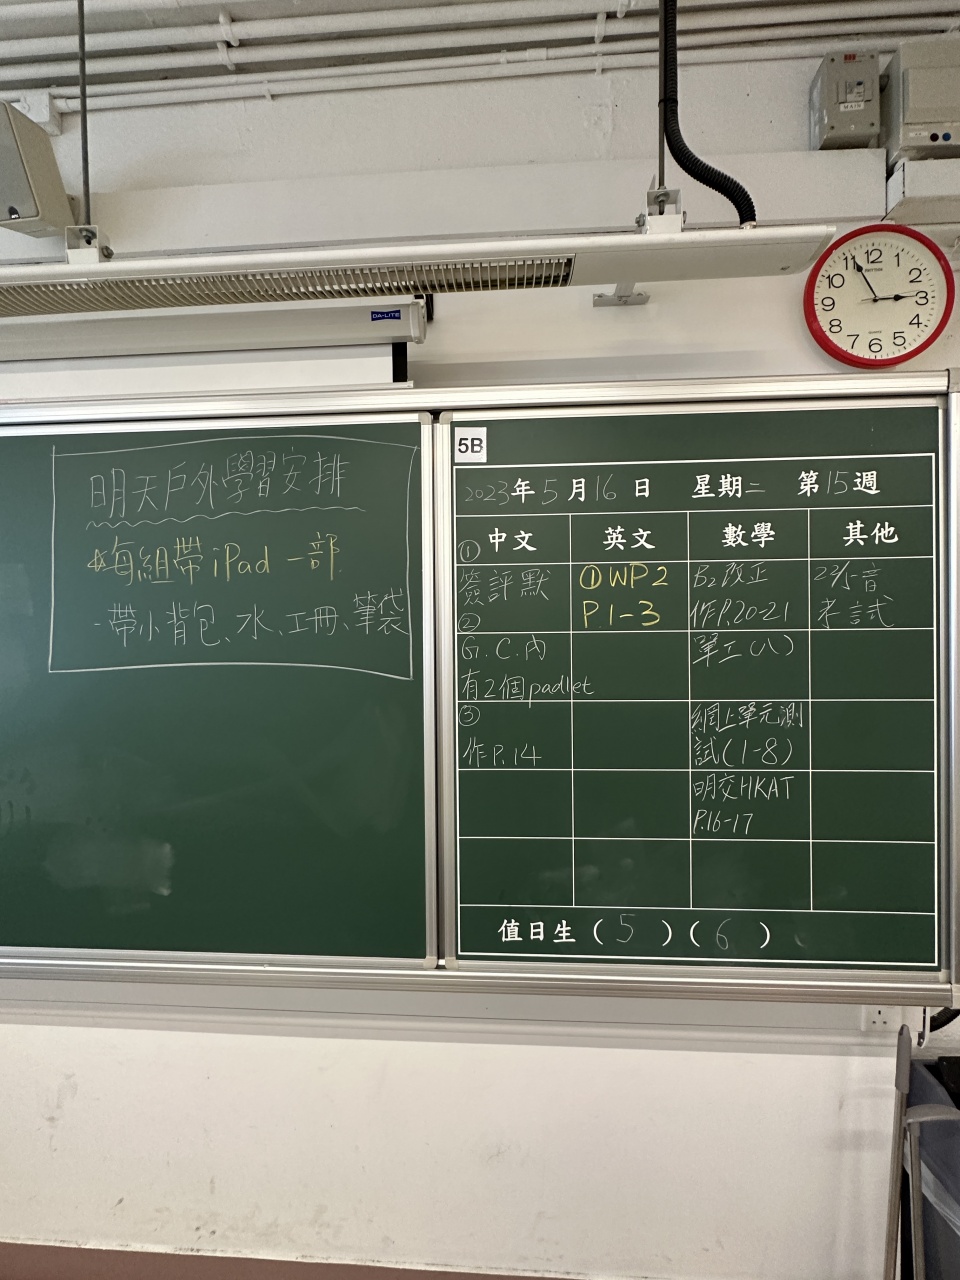 MAIN
12
11
1
10
2
9
3
8
4
7
5
6
RHYTHM
QUARTZ
DA-LITE
明天戶外學習安排
*每組帶iPad一部.
-帶小背包、水、工冊、筆袋
5B
2023年5月16日 星期二 第15週
中文 英文 數學 其他
①
簽評默
②
G.C.內
有2個padlet
③
作P.14
①WP2
P.1-3
B2改正
作P.20-21
單工(八)
網上單元測
試(1-8)
明交HKAT
P.16-17
23/5音
考試
值日生(5)(6)